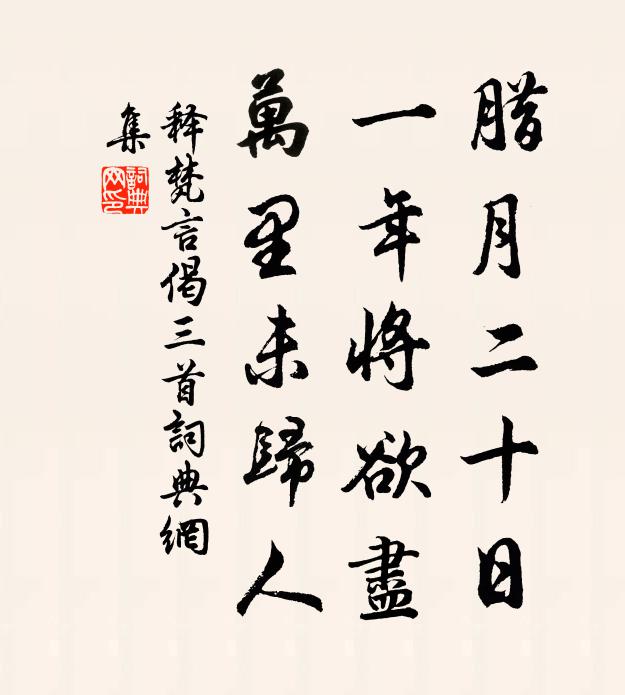 腊月二十日
一年將欲盡
萬里未歸人
释梵言偈三首詞典網
集
詞典
网印